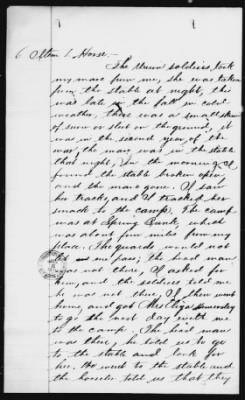 6 Item 1. Horse.—
The Union soldiers took
my mare from me, she was taken
from the stable at night, this
was late in the fall in cold
weather, there was a small skim
of snow or sleet on the ground, it
was in the second year of the
war, the mare was in the stable
that night, In the morning I
found the stable broken open
and the mare gone. I saw
her tracks, and I tracked her
smack to the camp. The camp
was at Spring which
was about miles from my
place. The guards would not
let me pass; the head man
was not there, I asked for
him, and the soldiers told me
he was not there, I then went
home and got
to go the next day with me
to the camp. The head man
was there, he told us to go
to the stable and look for
her. We went to the stable and
the told us that they